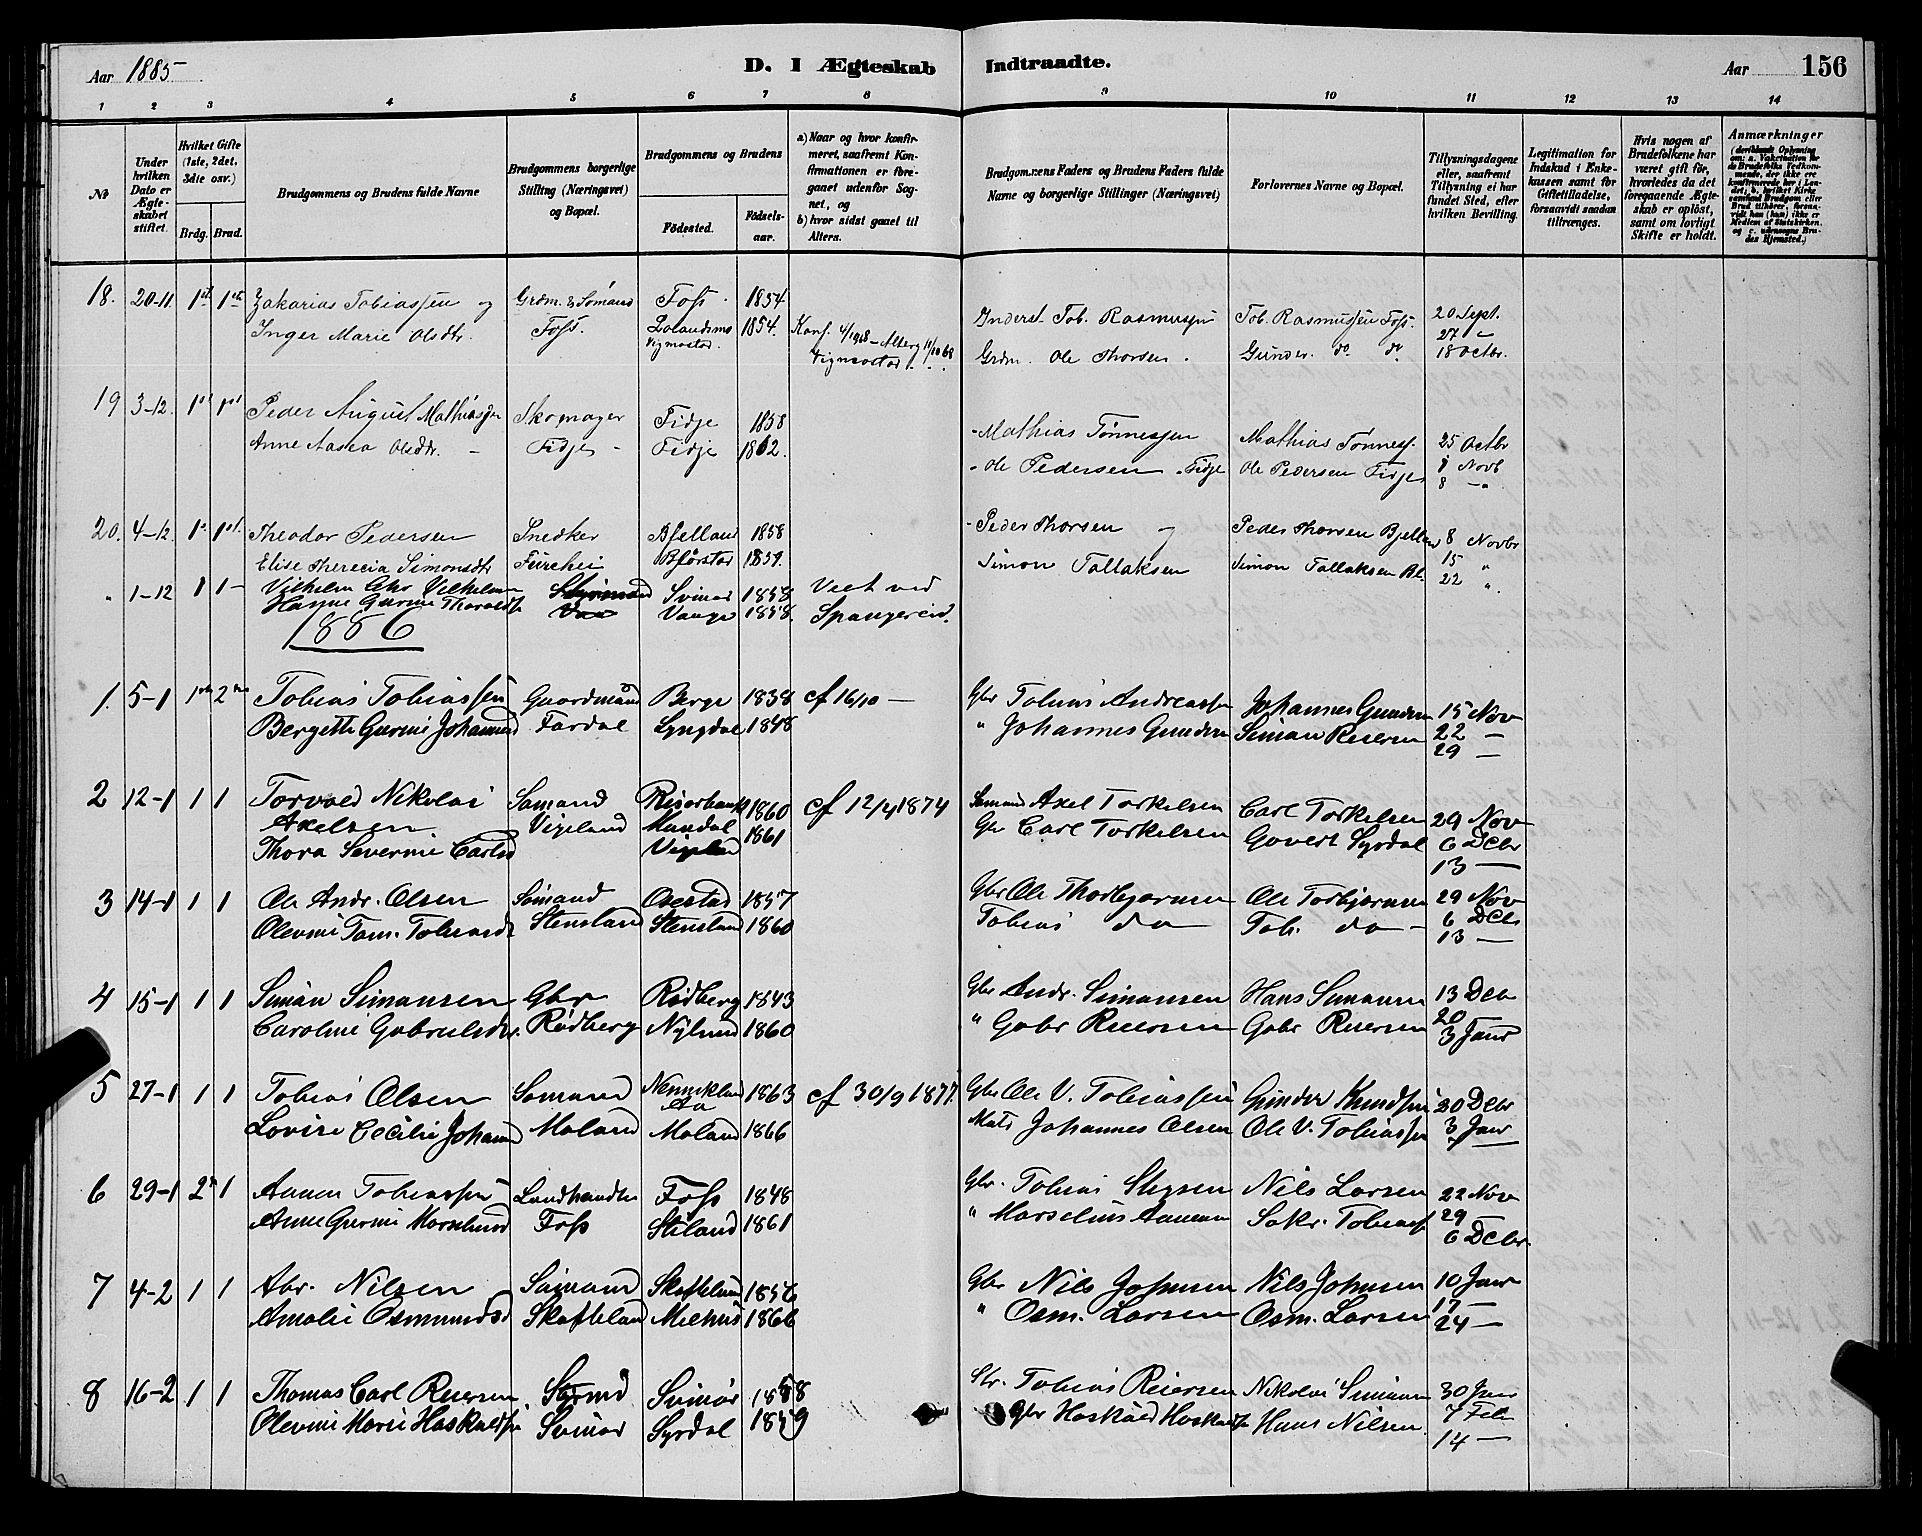 Aar 1885 D. I Ægteskab Indtraadte. Aar 156
1 2 3 4 5 6 7 8 9 10 11 12 13 14
No
Under hvilken Dato er Ægteskabet stiftet.
Hvilket Gifte (1ste, 2det, 3die osv.)
Brdg. Brud.
Brudgommens og Brudens fulde Navne
Brudgommens borgerlige Stilling (Næringsvei) og Bopæl.
Brudgommens og Brudens
Fødested. Fødselsaar.
a) Naar og hvor konfirmeret, saafremt Konfirmationen er foregaaet udenfor Sognet, og
b) hvor sidst gaaet til Alters.
Brudgommens Faders og Brudens Faders fulde Navne og borgerlige Stillinger (Næringsvei)
Forlovernes Navne og Bopæl.
Tillysningsdagene eller, saafremt Tillysning ei har fundet Sted, efter hvilken Bevilling.
Legitimation for Indskud i Enkekassen samt for Giftetilladelse, forsaavidt saadan tiltrænges.
Hvis nogen af Brudefolkene har været gift før, hvorledes da det foregaaende Ægteskab er opløst, samt om lovligt Skifte er holdt.
Anmærkninger
18. 20-11 1st 1ste Zakarias Tobiassen og Grdm. & Sømand Foss 1854 Inderst Tob. Rasmussen Tob. Rasmussen Foss. 20 Sept.
Inger Marie Olsdtr. Foss. Vigmostad 1854. Konf. Vigmostad Grdm. Ole Thorsen. Gunder do do 27 "
18 Octbr.
19 3-12. 1st 1st Peder August Mathiassen Skomager Fidje 1858 Mathias Tønnessen Mathias Tønness. 25 Octbr
Anne Aasea Olsdtr. Fidje Fidje 1862. Ole Pedersen Fidje Ole Pedersen Fidje 1 Novb
8 "
20. 4-12. 1st 1st. Theodor Pedersen Snedker Bjelland 1858 Peder Thorsen Peder Thorsen Bjelland 8 Novbr
Elise Therecia Simonsdtr 1859. Simon Tallaksen Simon Tallaksen 15 "
22 "
" 1-12 1 1 Vilhelm Chr Vilhelmsen Styrmand Svinør 1858 Viet ved
Hanne Gurine Thoralds Vange 1858. Spangereid.
1886
1. 5-1 1ste 2den Tobias Tobiassen Gaardmand Berge 1838 cf 16/10 Gbr Tobias Andreassen Johannes Gundersen 15 Nov
Bergette Gurine Johannesd Fardal Lyngdal 1848 " Johannes Gundersen Simon Reiersen 22 -
29 -
2 12-1 1 1 Torvald Nikolai Sømand Risørbank 1860 cf 12/4 1874 Sømand Axel Torkelsen Carl Torkelsen 29 Nov
Axelsen Vigeland Mandal 1861 Gbr Carl Torkelsen Govert Syrdal 6 Dcbr
Thora Severine Carlsd Vigeland 13 -
3 14-1 1 1 Ole Andr. Olsen Sømand Osestad 1857 Gbr Ole Thorbjørnsen Ole Torbjørnsen 29 Nov
Olevine Tom. Tobiasdtr Stensland Stensland 1860 Tobias do Tob. do - 6 Dcbr
13 -
4 15-1 1 1 Simon Simonsen Gbr Rødberg 1843 Gbr Andr. Simonsen Hans Simonsen 13 Dcb
Caroline Gabrielsdtr. Rødberg Nylund 1860 " Gabr Reiersen Gabr Reiersen 20
3 Janr
5 27-1 1 1 Tobias Olsen Sømand Aa 1863 cf 30/9 1877. Gbr Ole V. Tobiassen Gunder Knudsen 20 Dcbr
Lovise Cecilie Johannesd Møland Møland 1866 Johannes Olsen Ole V. Tobiassen 3 Janr
6 29-1 2 1 Aanen Tobiassen Landhandler Foss 1848 Gbr. Tobias Stigsen Nils Larsen 22 Nov
Anne Gurine Foss Stiland 1861 " Marselius Aanensen Sakr. Tobiass 29
6 Dcbr.
7 4-2 1 1 Abr. Nilsen Sømand Skofteland 1856 Gbr Nils Johnsen Nils Johnsen 10 Janr
Amalie Osmundsd Skofteland Melhus 1866 " Osm. Larsen Osm. Larsen 17 -
24 -
8 16-2 1 1 Thomas Carl Reiersen Styrmd Svinør 1858 Tobias Reiersen Nikolai Simonsen 30 Janr
Olevine Marie Haskaldsen Svinør Syrdal 1859 Gbr Haskald Haskaldsen Hans Nilsen 7 Feb
14 -